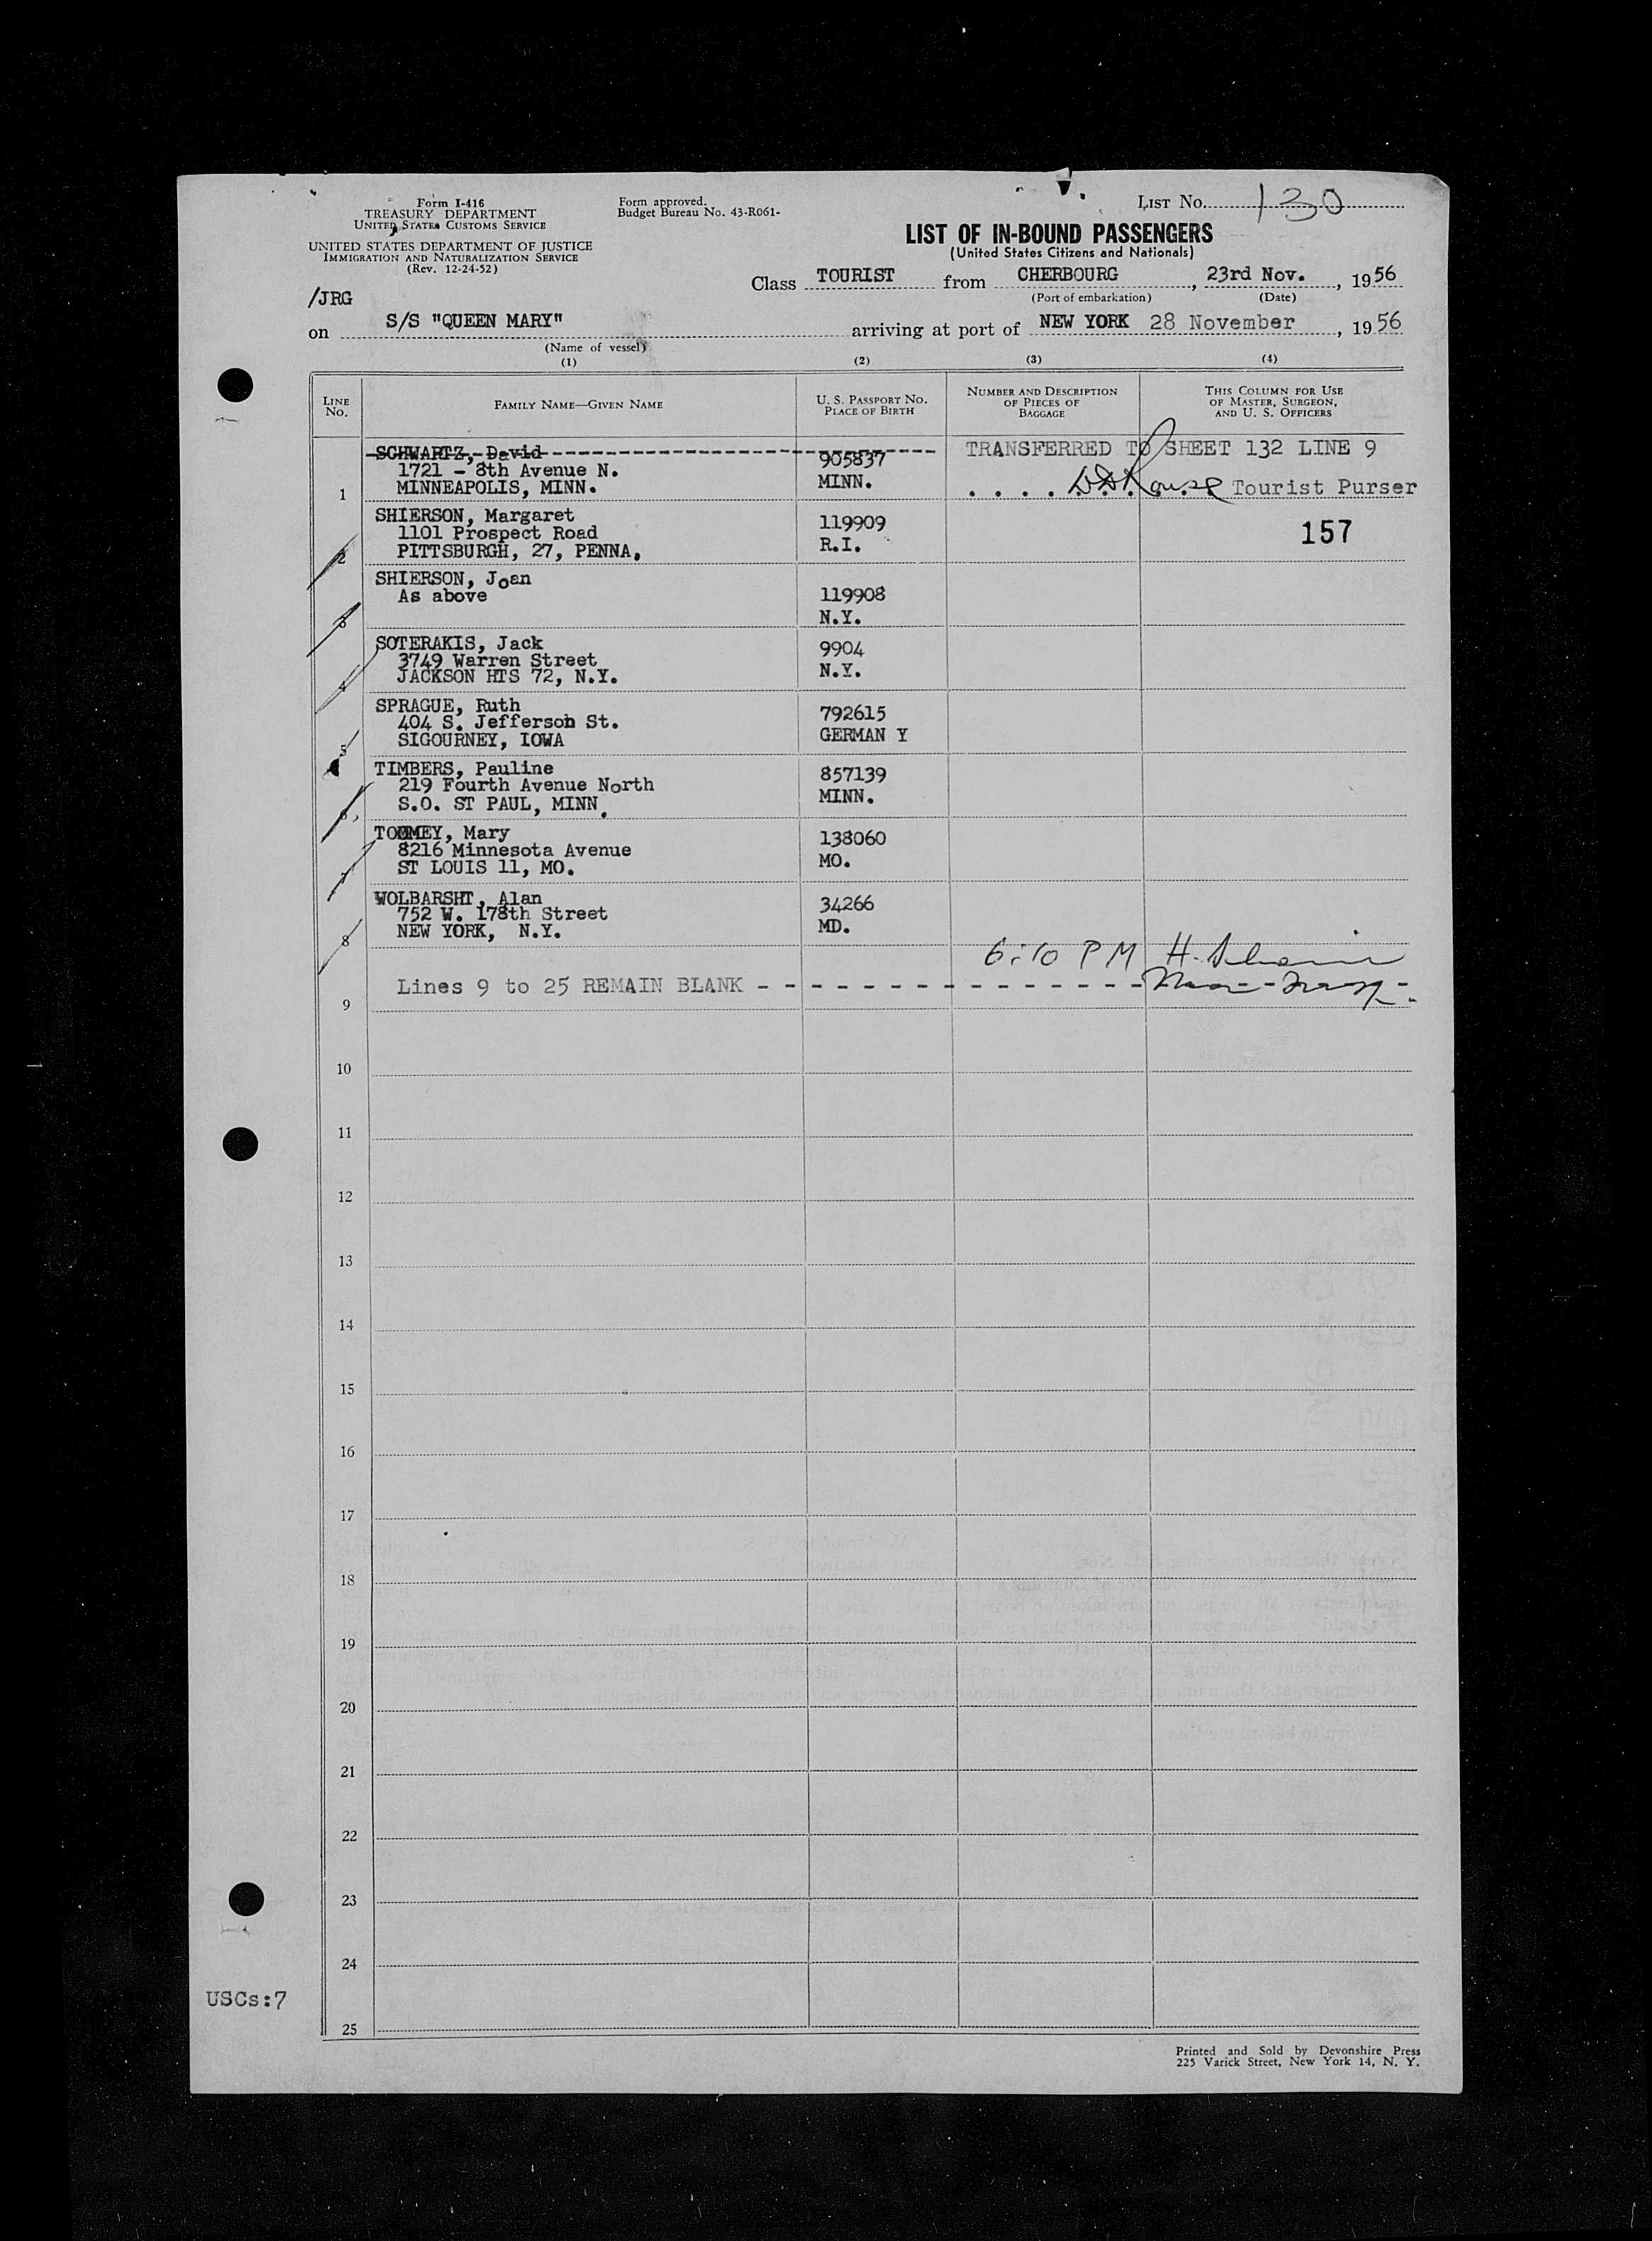 Form I-416
TREASURY DEPARTMENT
UNITED STATES CUSTOMS SERVICE
UNITED STATES DEPARTMENT OF JUSTICE
IMMIGRATION AND NATURALIZATION SERVICE
(Rev. 12-24-52)
Form approved.
Budget Bureau No. 43-R061-
LIST No. 130
LIST OF IN-BOUND PASSENGERS
(United States Citizens and Nationals)
Class TOURIST from CHERBOURG, 23rd Nov., 1956
(Port of embarkation) (Date)
/JRG
on S/S "QUEEN MARY" arriving at port of NEW YORK 28 November, 1956
(Name of vessel)
(1) (2) (3) (4)
LINE No. FAMILY NAME—GIVEN NAME U. S. PASSPORT NO. PLACE OF BIRTH NUMBER AND DESCRIPTION OF PIECES OF BAGGAGE THIS COLUMN FOR USE OF MASTER, SURGEON, AND U. S. OFFICERS
SCHWARTZ, David 905837 TRANSFERRED TO SHEET 132 LINE 9
1721 - 8th Avenue N.
1 MINNEAPOLIS, MINN. MINN. . . . . Tourist Purser
SHIERSON, Margaret 119909 157
1101 Prospect Road
2 PITTSBURGH, 27, PENNA, R.I.
SHIERSON, Joan
As above 119908
3 N.Y.
SOTERAKIS, Jack 9904
3749 Warren Street
4 JACKSON HTS 72, N.Y. N.Y.
SPRAGUE, Ruth 792615
404 S. Jefferson St.
5 SIGOURNEY, IOWA GERMAN Y
TIMBERS, Pauline 857139
219 Fourth Avenue North
6 S.O. ST PAUL, MINN. MINN.
TOOMEY, Mary 138060
8216 Minnesota Avenue
7 ST LOUIS 11, MO. MO.
WOLBARSHT, Alan 34266
752 W. 178th Street
8 NEW YORK, N.Y. MD.
6:10 PM H.
9 Lines 9 to 25 REMAIN BLANK - - - - - - - - - - - - - - - - -
10
11
12
13
14
15
16
17
18
19
20
21
22
23
24
USCs:7
25
Printed and Sold by Devonshire Press
225 Varick Street, New York 14, N. Y.